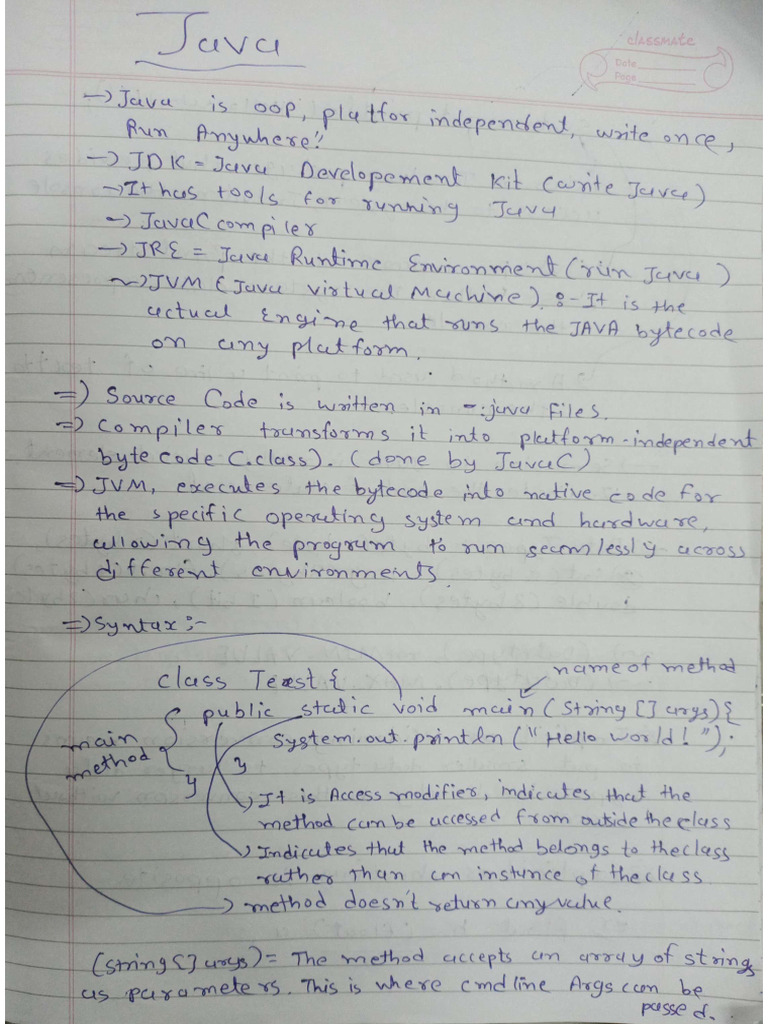 Java
classmate
Date
Page
→ Java is OOP, platfor independent, write once,
Run Anywhere!!
→ JDK = Java Developement Kit (write Java)
→ It has tools for running Java
→ JavaC compiler
→ JRE = Java Runtime Environment (run Java)
→ JVM (Java Virtual Machine) :- It is the
actual Engine that runs the JAVA bytecode
on any platform.
⇒ Source Code is written in -.java files.
⇒ Compiler transforms it into platform-independent
byte code (.class). (done by JavaC)
⇒ JVM, executes the bytecode into native code for
the specific operating system and hardware,
allowing the program to run seamlessly across
different environments.
⇒ Syntax :-
name of method
class Test {
public static void main (String [] args) {
main
method
System.out.println ("Hello world! ");
}
}
→ It is Access modifier, indicates that the
method can be accessed from outside the class
→ Indicates that the method belongs to the class
rather than an instance of the class
→ method doesn't return any value.
(String [] args) = The method accepts an array of strings
as parameters. This is where cmd line Args can be
passed.